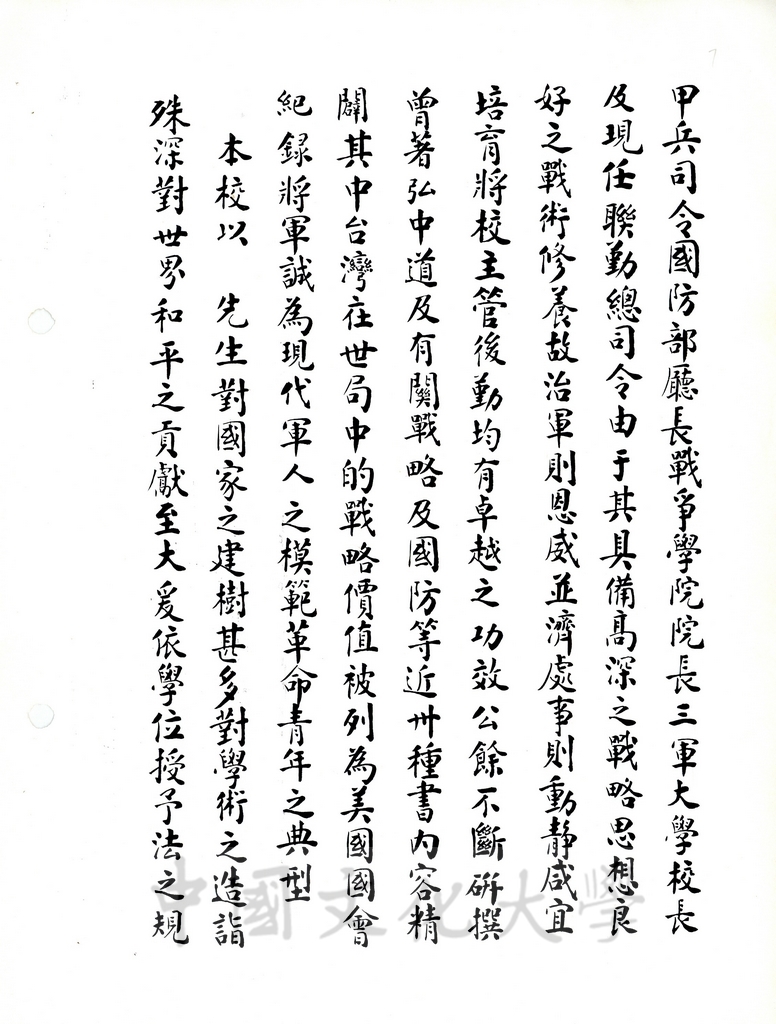 甲兵司令國防部廳長戰爭學院院長三軍大學校長
及現任聯勤總司令由于其具備高深之戰略思想良
好之戰術修養故治軍則恩威並濟處事則動靜咸宜
培育將校主管後勤均有卓越之功效公餘不斷研撰
曾著弘中道及有關戰略及國防等近卅種書內容精
闢其中台灣在世局中的戰略價值被列為美國國會
紀録將軍誠為現代軍人之模範革命青年之典型
本校以　先生對國家之建樹甚多對學術之造詣
殊深對世界和平之貢獻至大爰依學位授予法之規
中國文化大學
7